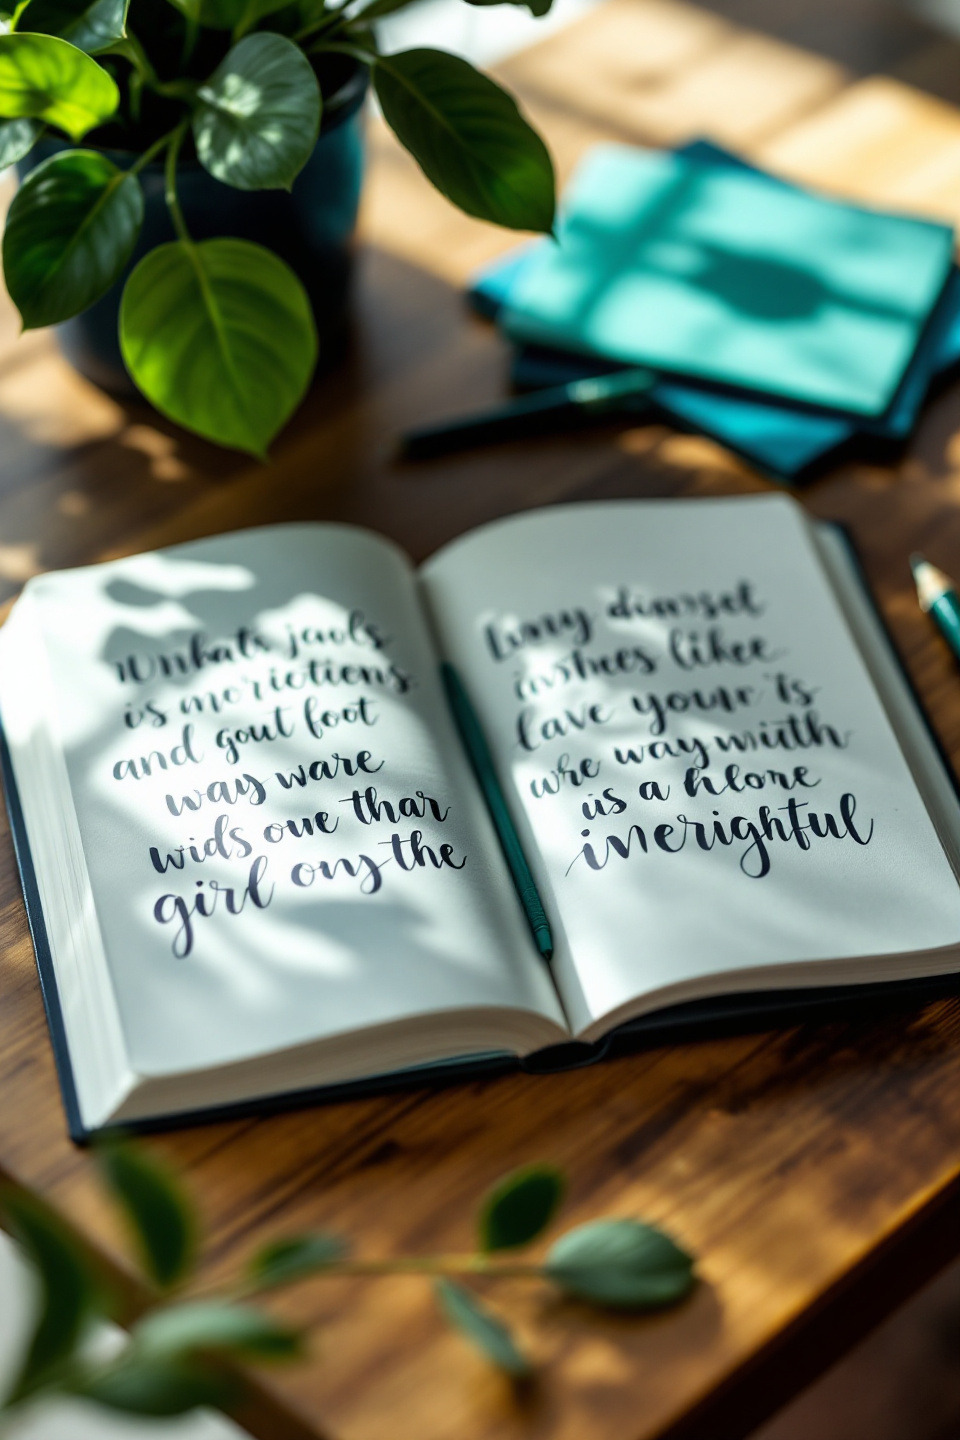 is morictions
and gout foot
way ware
wids oue thar
girl ony the
diarset
inshes likee
lave your is
whe way with
us a hlore
inerighful